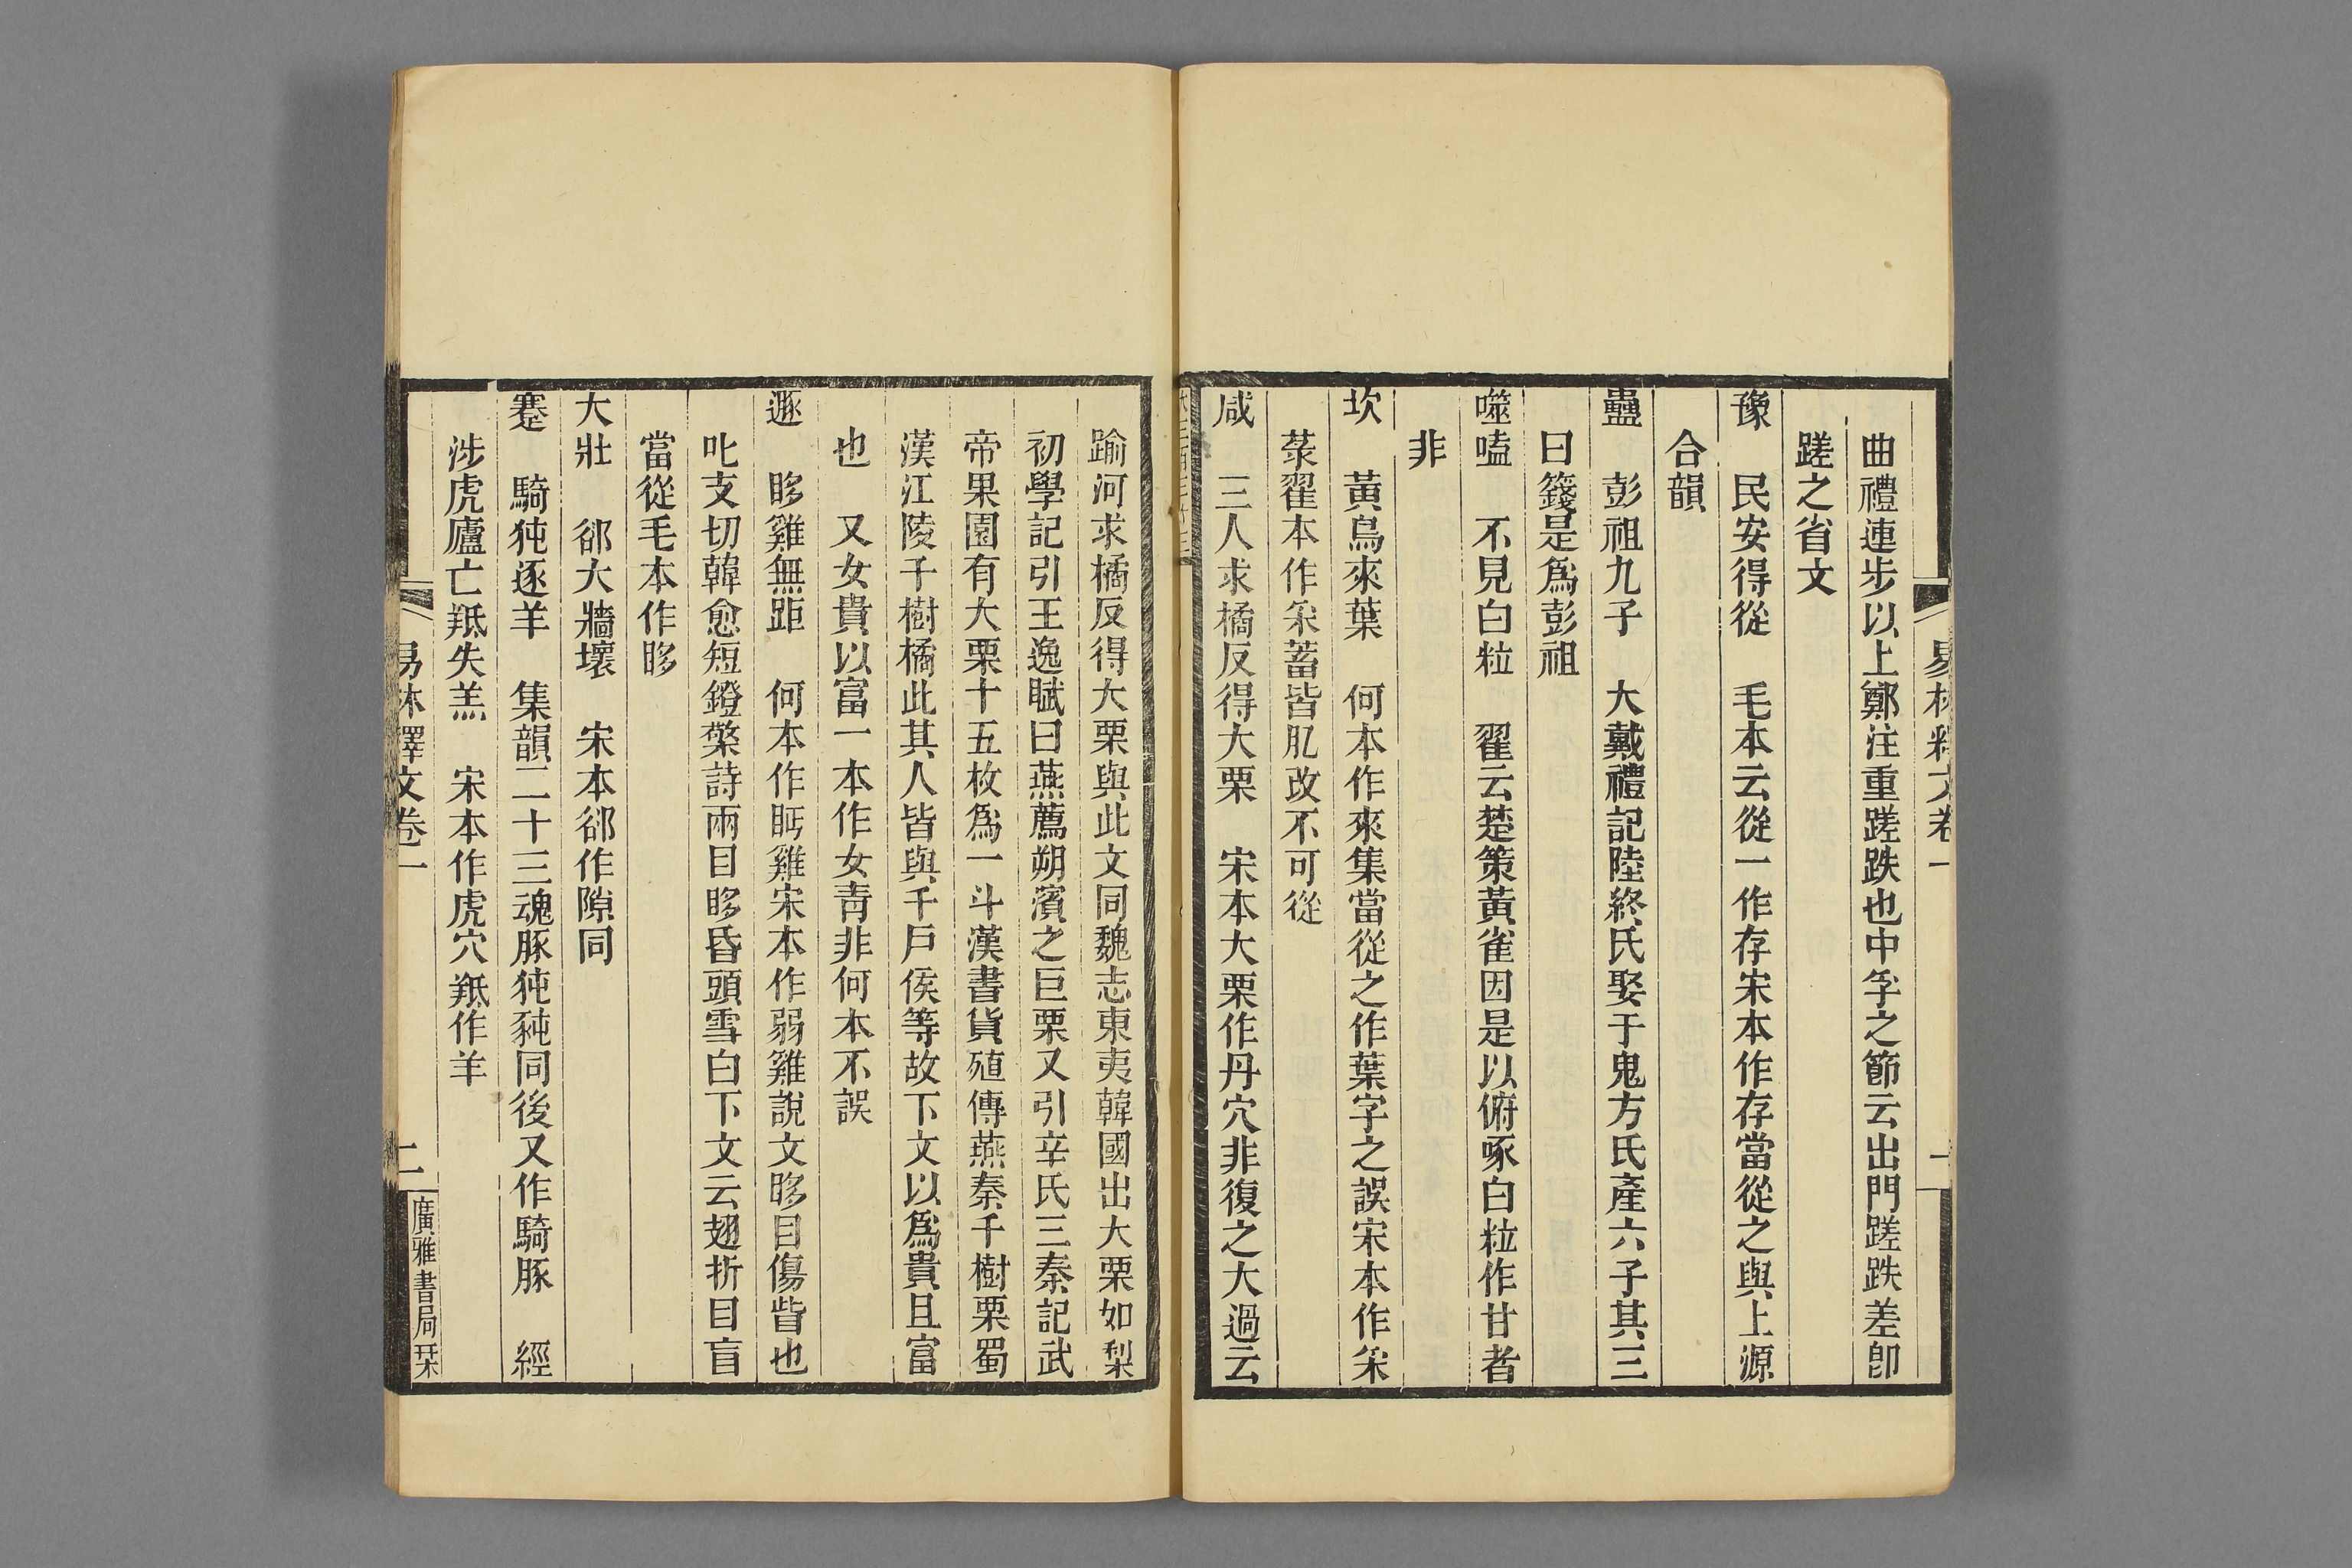 易林釋文卷一
曲禮連步以上鄭注重蹉跌也中孚之節云出門蹉跌差卽
蹉之省文
豫　民安得從　毛本云從一作存宋本作存當從之與上源
合韻
蠱　彭祖九子　大戴禮記陸終氏娶于鬼方氏產六子其三
曰籛是爲彭祖
噬嗑　不見白粒　翟云楚策黃雀因是以俯啄白粒作甘者
非
坎　黃鳥來葉　何本作來集當從之作葉字之誤宋本作采
菉翟本作采蓄皆肊改不可從
咸　三人求橘反得大栗　宋本大栗作丹穴非復之大過云
踰河求橘反得大栗與此文同魏志東夷韓國出大栗如梨
初學記引王逸賦曰燕薦朔濱之巨栗又引辛氏三秦記武
帝果園有大栗十五枚爲一斗漢書貨殖傳燕秦千樹栗蜀
漢江陵千樹橘此其人皆與千戶侯等故下文以爲貴且富
也　又女貴以富一本作女靑非何本不誤
遯　眵雞無距　何本作眄雞宋本作弱雞說文眵目傷眥也
叱支切韓愈短鐙檠詩兩目眵昏頭雪白下文云翅折目盲
當從毛本作眵
大壯　郤大牆壞　宋本郤作隙同
蹇　騎㹠逐羊　集韻二十三魂豚㹠豘同後又作騎豚　經
涉虎廬亡羝失羔　宋本作虎穴羝作羊
易林釋文卷一
二
廣雅書局栞